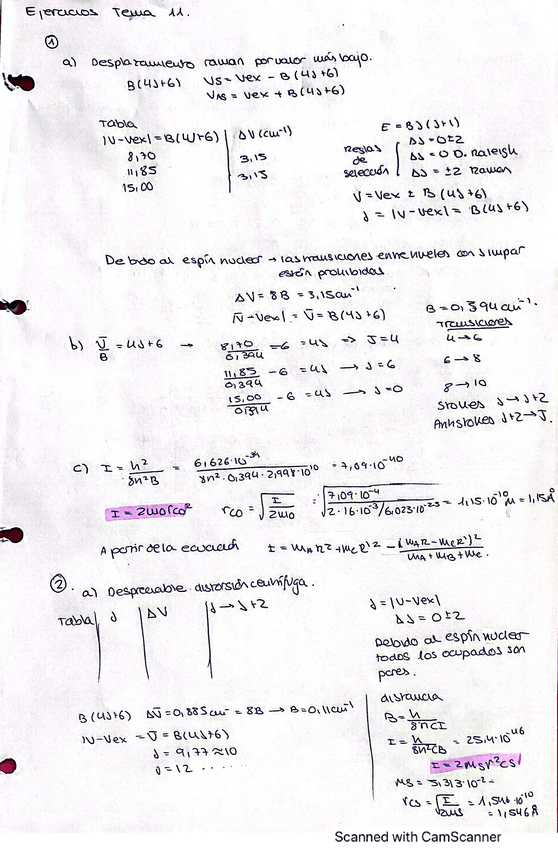 Ejercicios Tema 11.
①
a) Desplazamiento raman por valor más bajo.
B(4J+6) VS = Vex - B(4J+6)
VAS = Vex + B(4J+6)
Tabla
|V-Vex| = B(4J+6) ΔV (cm⁻¹)
8,70
11,85 3,15
15,00 3,15
E = BJ(J+1)
Reglas de selección
ΔJ = 0±2
ΔJ = 0 D. Raleigh
ΔJ = ±2 Raman
V = Vex ± B(4J+6)
J = |V-Vex| = B(4J+6)
Debido al espín nuclear → las transiciones entre niveles con J impar
están prohibidas
ΔV = 8B = 3,15cm⁻¹
|V̅-Vex| = V̅ = B(4J+6)
B = 0,394cm⁻¹.
b) V̅/B = 4J+6 → 8,70/0,394 - 6 = 4J => J=4
11,85/0,394 - 6 = 4J → J=6
15,00/0,394 - 6 = 4J → J=0
Transiciones
4→6
6→8
8→10
Stokes J→J+2
Antistokes J+2→J.
c) I = h²/8π²B = 6,626·10⁻³⁴/8π²·0,394·2,998·10¹⁰ = 7,09·10⁻⁴⁰
I = 2mOrCO² rCO = √(I/2mO) = √(7,09·10⁻⁴/2·16·10⁻³/6,023·10⁻²³) = 1,15·10⁻¹⁰ = 1,15Å
A partir de la ecuación I = mAR² + mCR'² - (mAR - mCR')²/mA + mB + mC.
②. a) Despreciable distorsión centrífuga.
Tabla J ΔV J→J+2
J = |V-Vex|
ΔJ = 0±2
Debido al espín nuclear
todos los ocupados son
pares.
B(4J+6) ΔV̅ = 0,885cm⁻ = 8B → B = 0,11cm⁻¹
|V-Vex = V̅ = B(4J+6)
J = 9,77≈10
J = 12 .....
distancia
B = h/8πCI
I = h/8π²CB = 25,4·10⁻⁴⁶
I = 2mSr²CS
MS = 5,313·10⁻²
rCS = √(I/2mS) = 1,546·10⁻¹⁰
= 1,546Å
Scanned with CamScanner